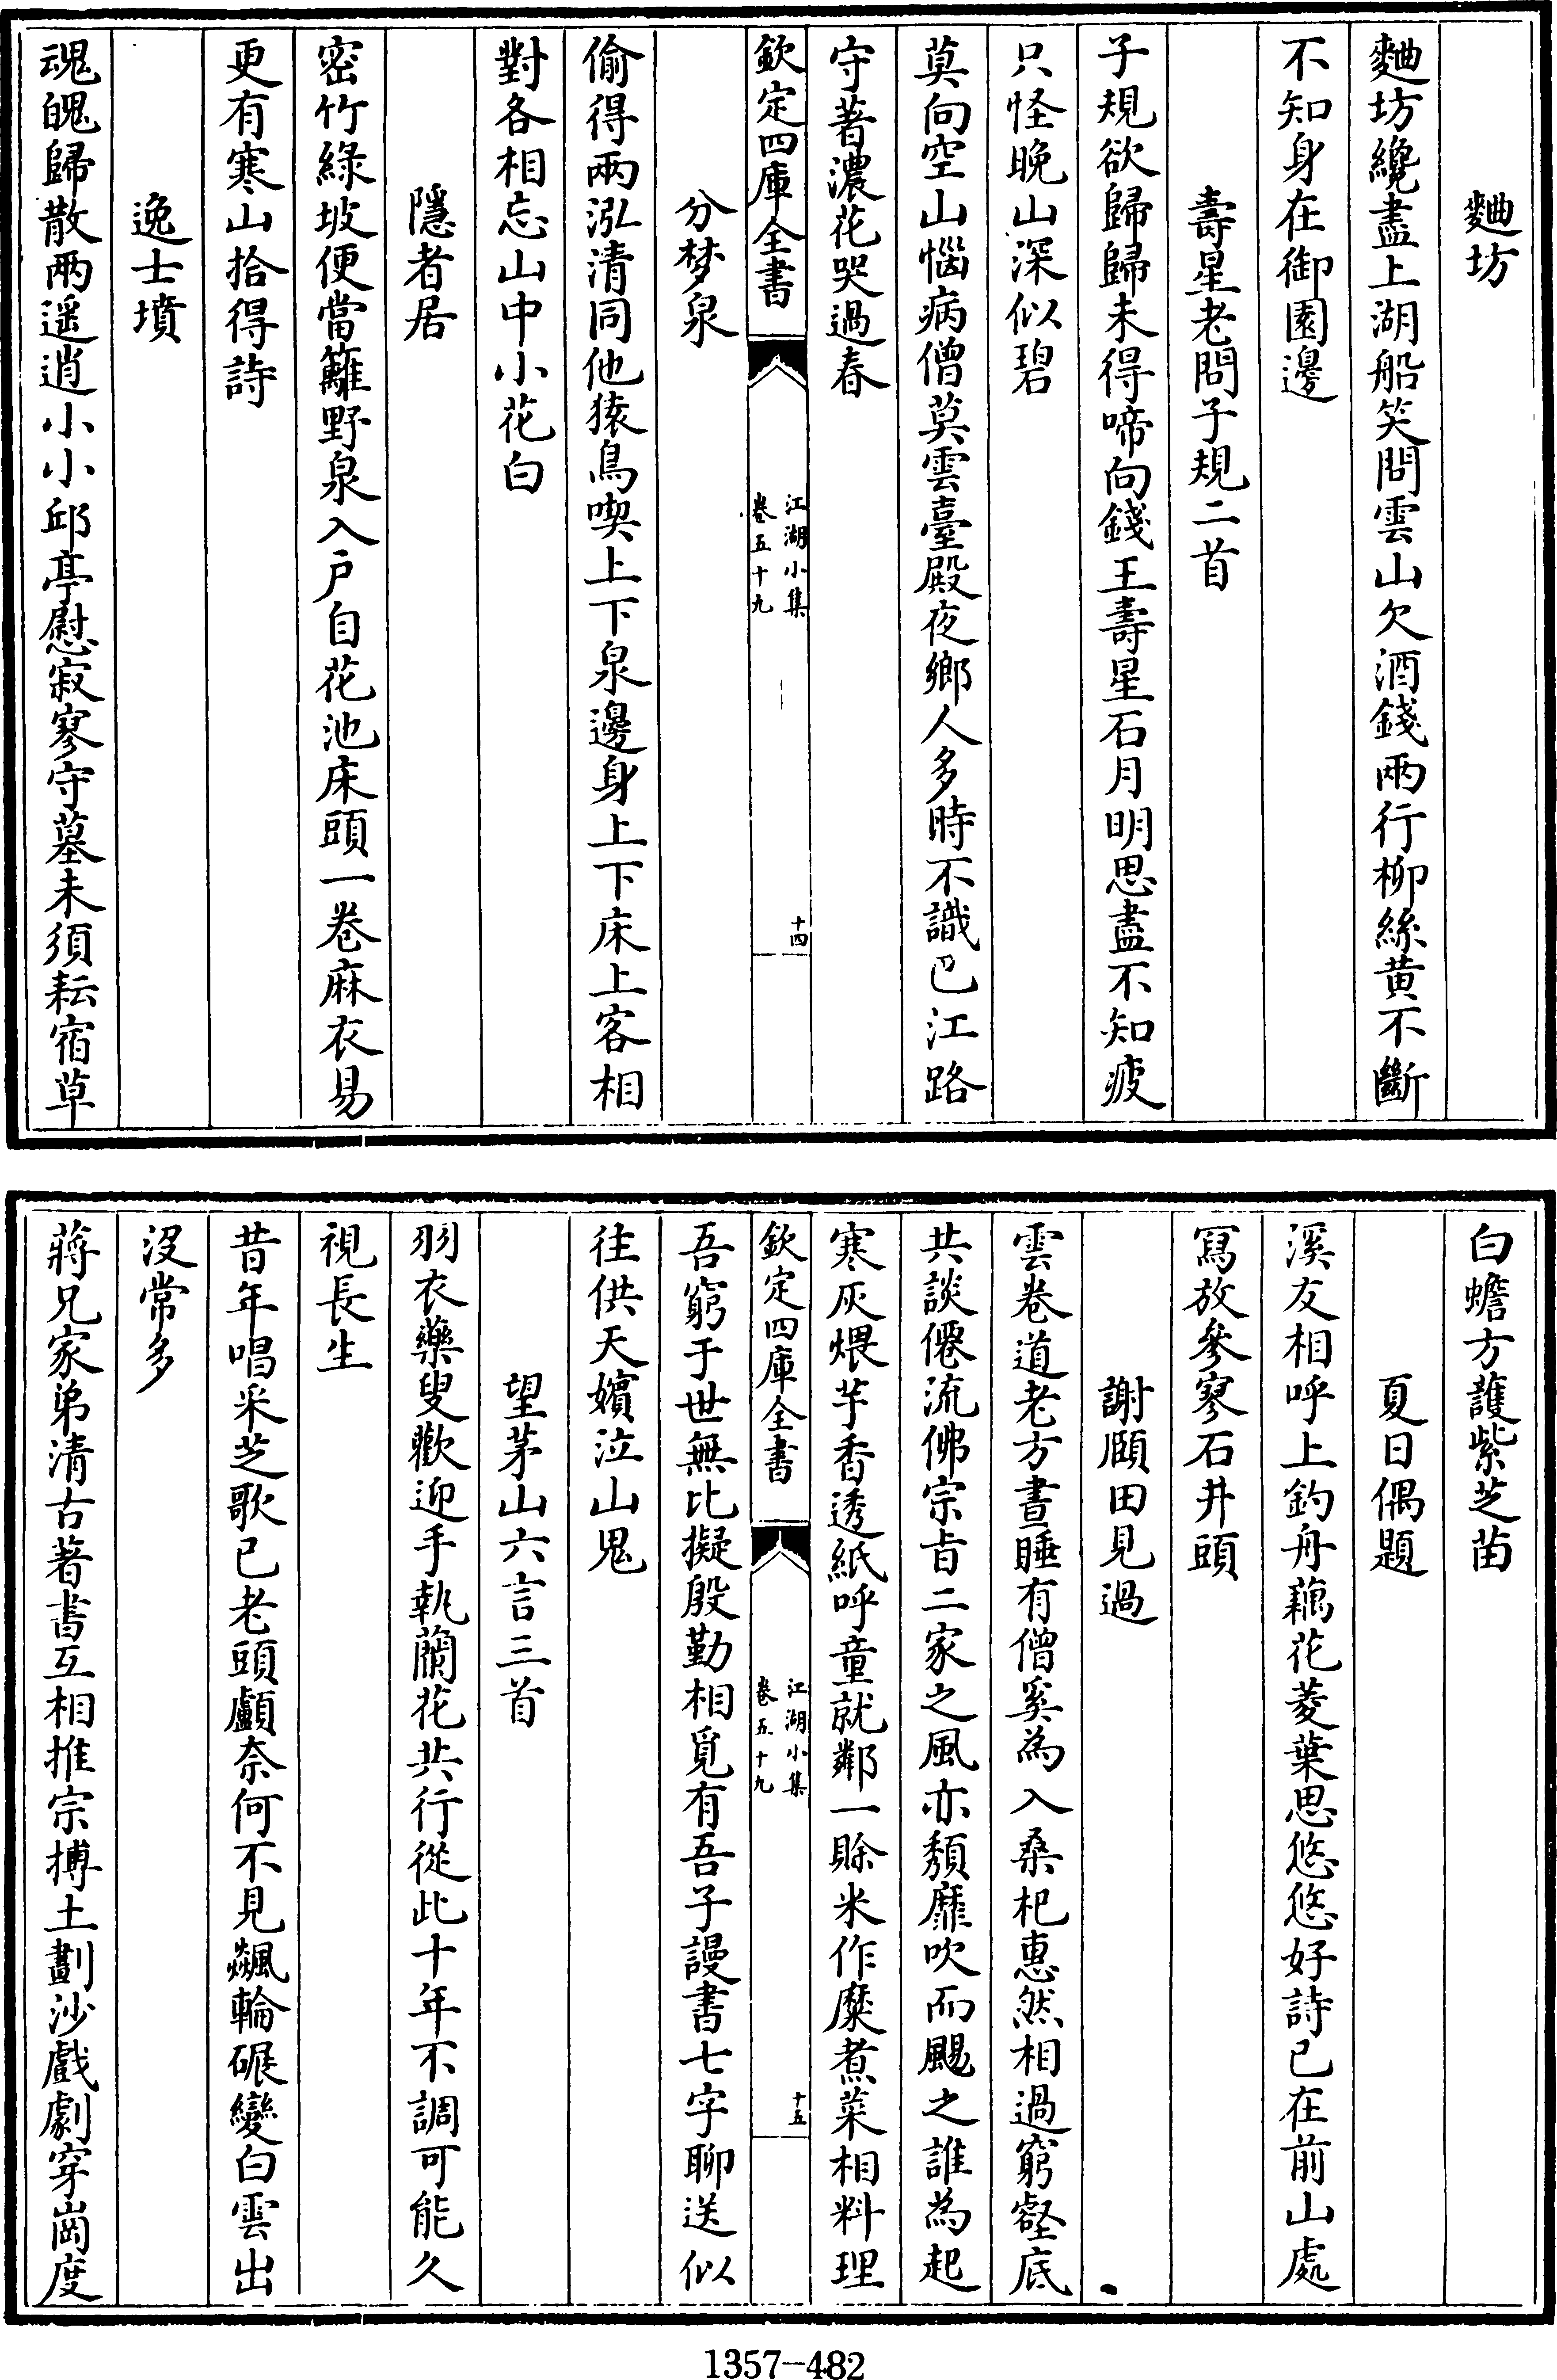 麯坊
麯坊纔盡上湖船笑問雲山欠酒錢兩行柳絲黄不斷
不知身在御園邊
壽星老問子規二首
子規欲歸歸未得啼向錢王壽星石月明思盡不知疲
只怪晚山深似碧
莫向空山惱病僧莫雲臺殿夜鄉人多時不識巴江路
守著濃花哭過春
欽定四庫全書
江湖小集
卷五十九
十四
分梦泉
偷得兩泓清同他猿鳥喫上下泉邊身上下床上客相
對各相忘山中小花白
隱者居
密竹綠坡便當籬野泉入戸自花池床頭一卷麻衣易
更有寒山拾得詩
逸士墳
魂魄歸散兩遥逍小小邱亭慰寂寥守墓未須耘宿草
白蟾方護紫芝苗
夏日偶題
溪友相呼上釣舟藕花菱葉思悠悠好詩已在前山處
冩放參寥石井頭
謝頥田見過
雲卷道老方晝睡有僧奚為入桑杞惠然相過窮壑底
共談僊流佛宗旨二家之風亦頽靡吹而颺之誰為起
寒灰煨芋香透紙呼童就鄰一賒米作糜煮菜相料理
欽定四庫全書
江湖小集
卷五十九
十五
吾窮于世無比擬殷勤相覓有吾子謾書七字聊送似
往供天嬪泣山鬼
望茅山六言三首
羽衣藥叟歡迎手執蘭花共行從此十年不調可能久
視長生
昔年唱采芝歌已老頭顱奈何不見飇輪碾變白雲出
沒常多
蔣兄家弟清古著書互相推宗摶土劃沙戲劇穿崗度
1357-482